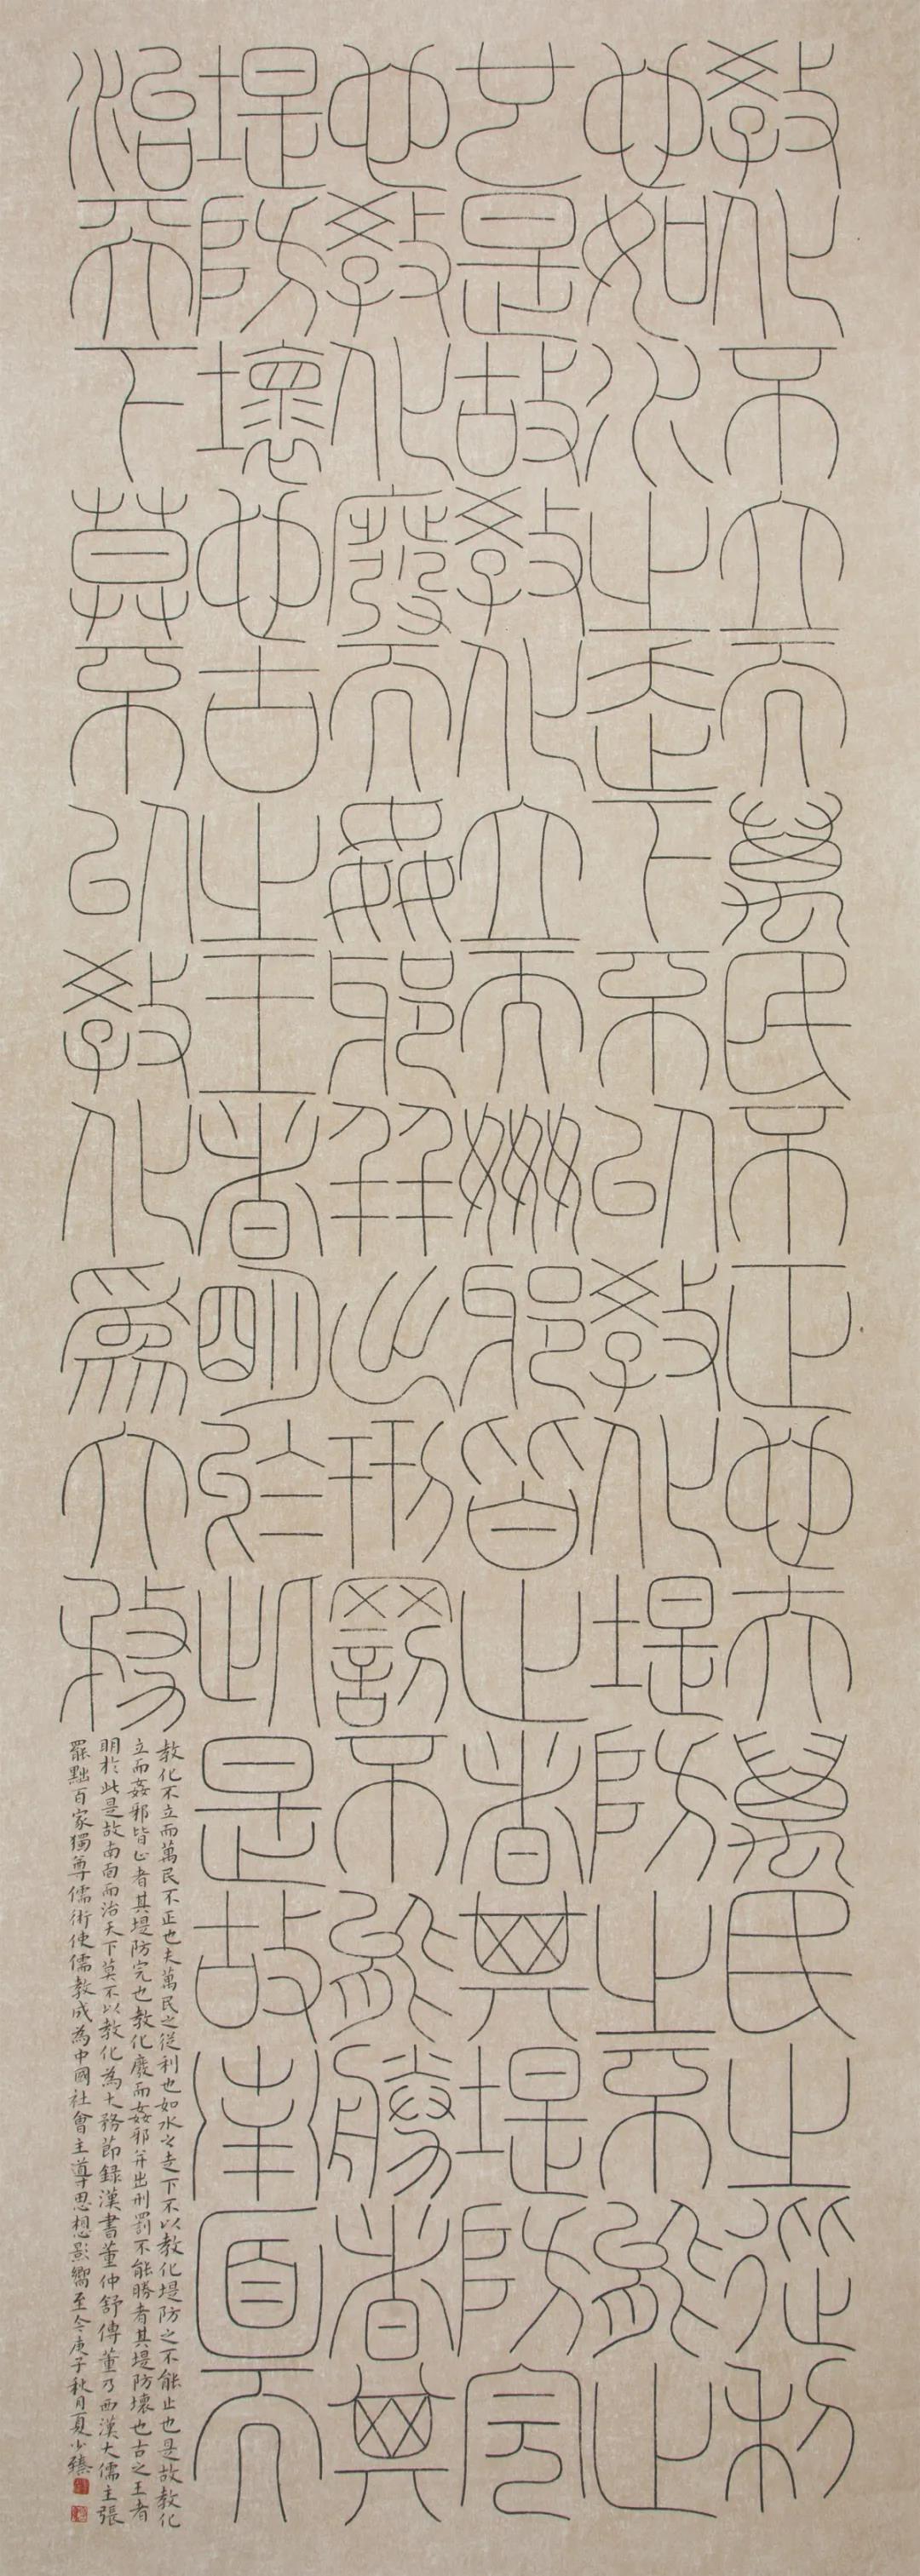 教化不立而萬民不正也夫萬民之從利
也如水之走下不以教化堤防之不能止
也是故教化立而姦邪皆止者其堤防完
也教化廢而姦邪并出刑罰不能勝者其
堤防壞也古之王者明於此是故南面而
治天下莫不以教化為大務
教化不立而萬民不正也夫萬民之從利也如水之走下不以教化堤防之不能止也是故教化
立而姦邪皆止者其堤防完也教化廢而姦邪并出刑罰不能勝者其堤防壞也古之王者
明於此是故南面而治天下莫不以教化為大務節錄漢書董仲舒傳董乃西漢大儒主張
罷黜百家獨尊儒術使儒教成為中國社會主導思想影響至今庚子秋月夏少臻